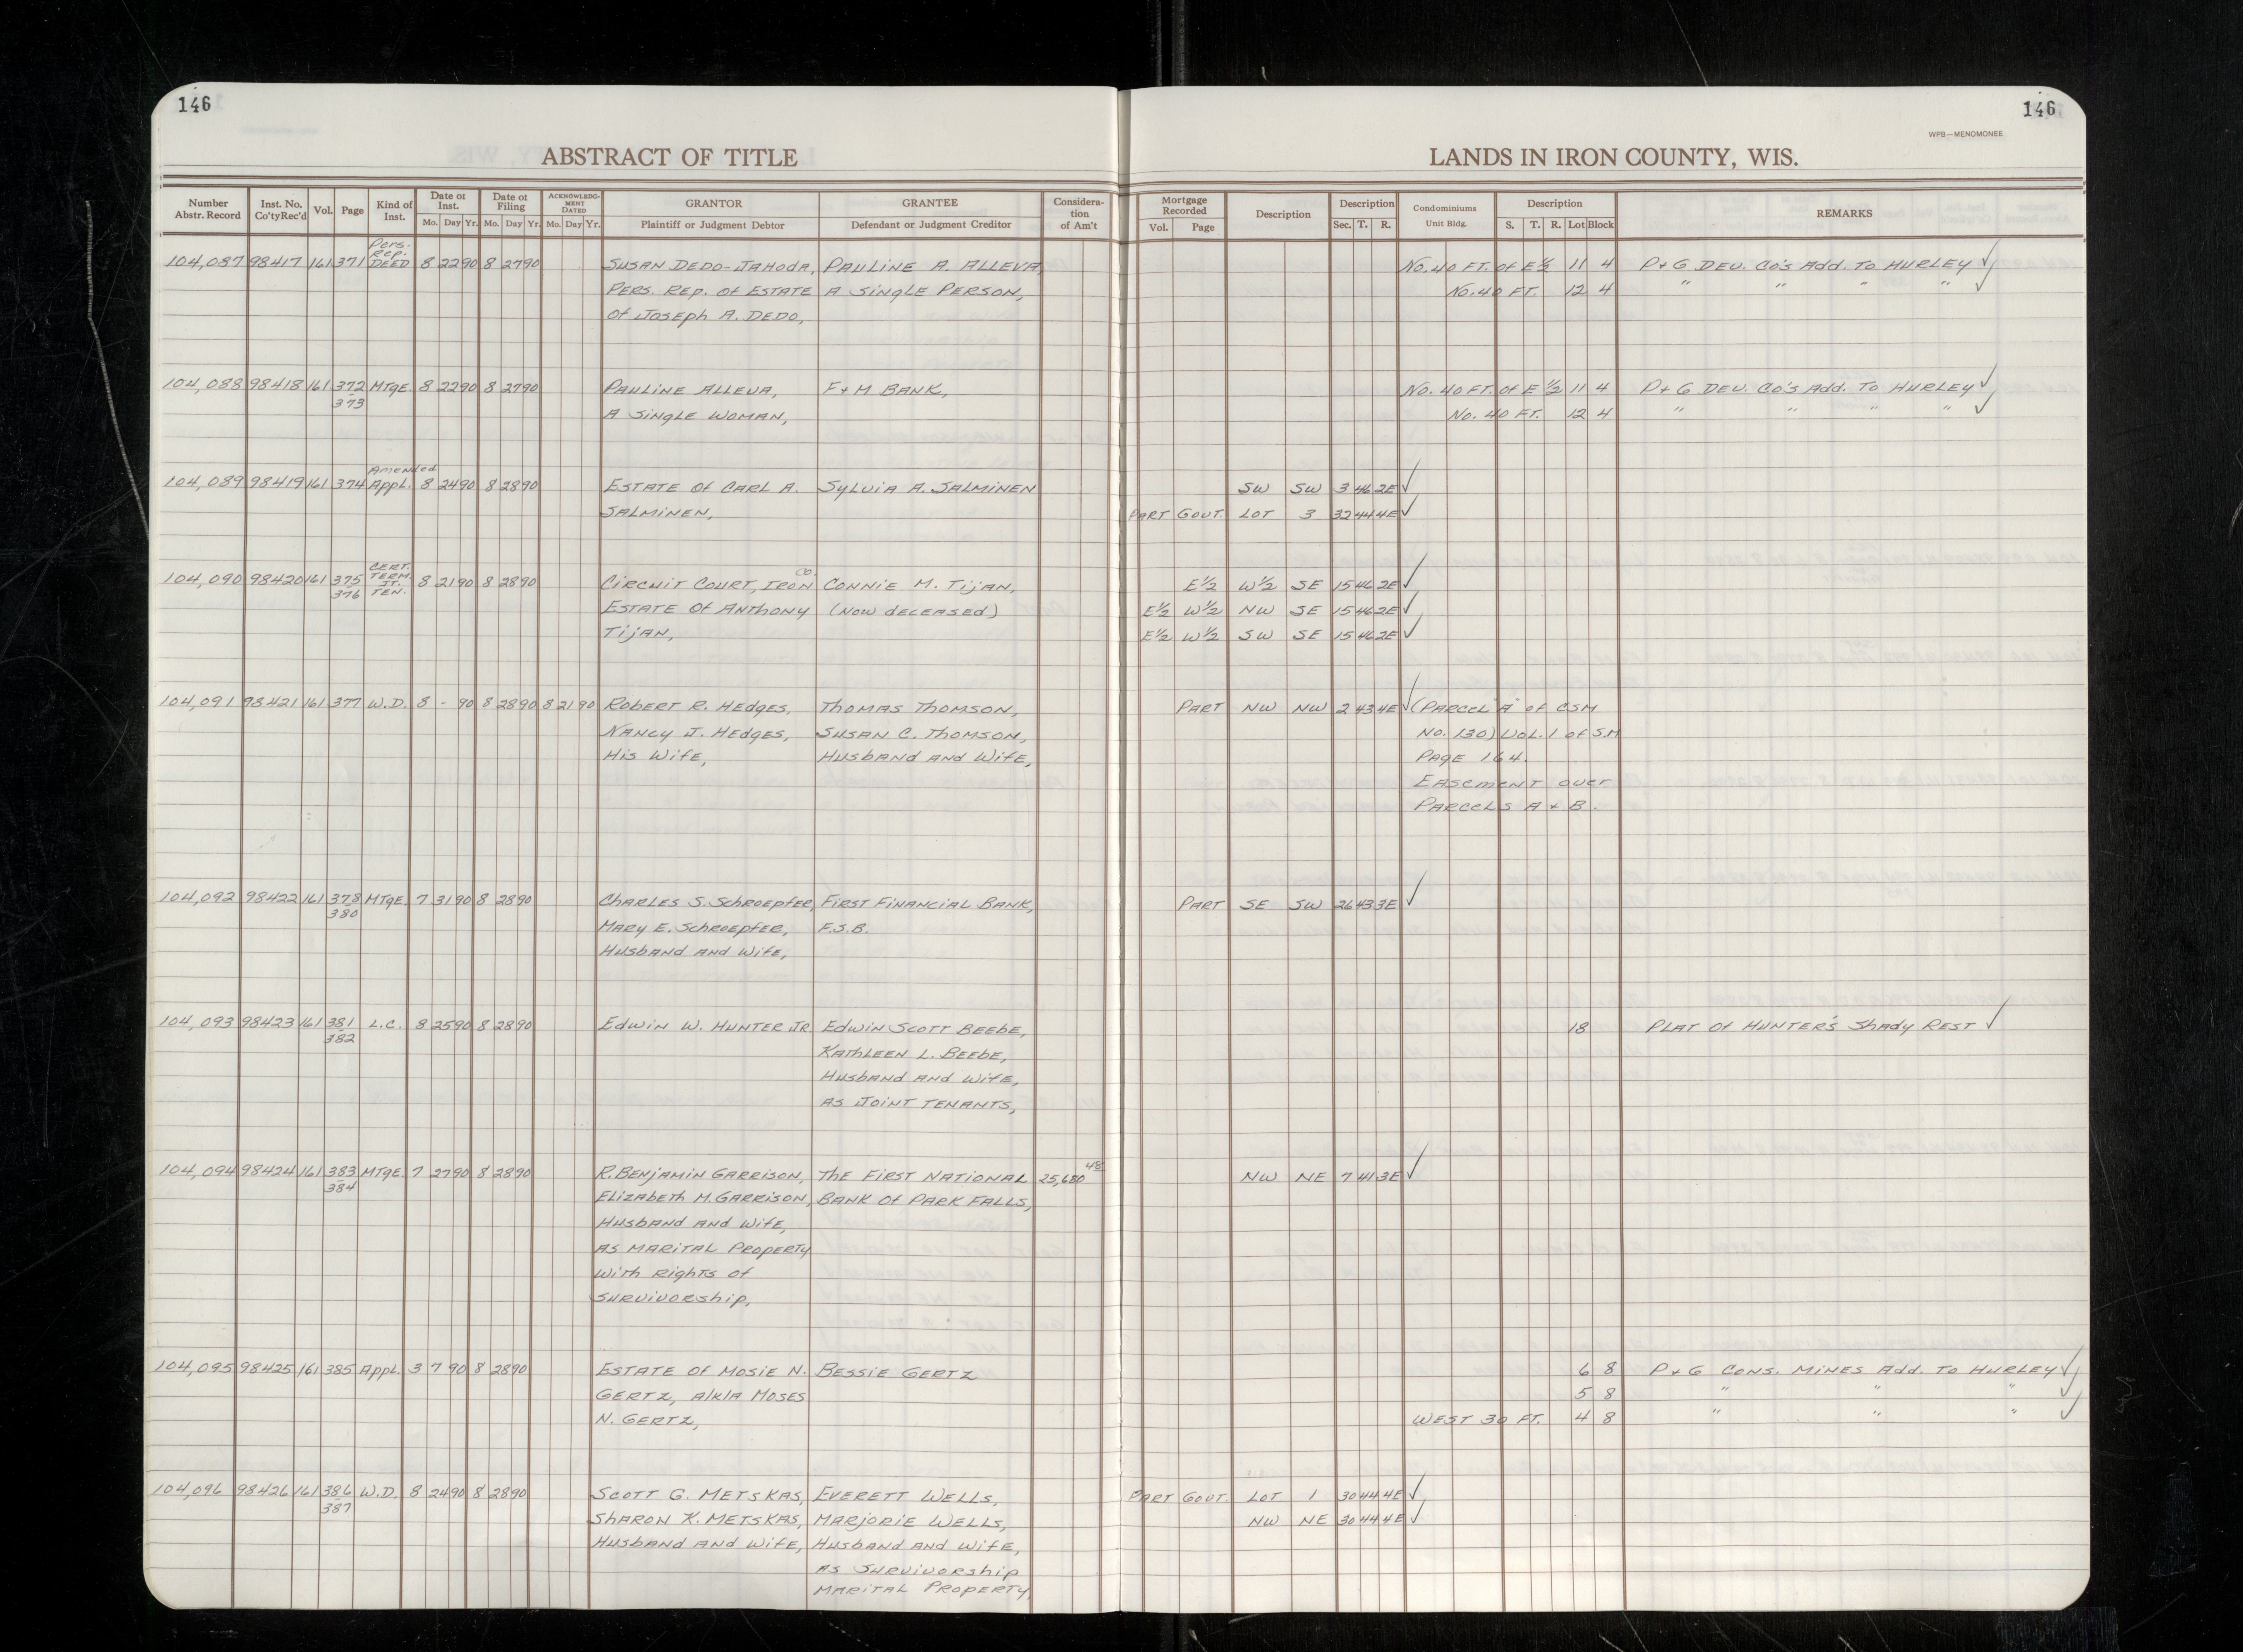 146
146
WPB—MENOMONEE
ABSTRACT OF TITLE
LANDS IN IRON COUNTY, WIS.
Number Abstr. Record Inst. No. Co'ty Rec'd Vol. Page Kind of Inst. Date of Inst. Mo. Day Yr. Date of Filing Mo. Day Yr. ACKNOWLEDGMENT DATED Mo. Day Yr. GRANTOR Plaintiff or Judgment Debtor GRANTEE Defendant or Judgment Creditor Consideration of Am't Mortgage Recorded Vol. Page Description Description Sec. T. R. Condominiums Unit Bldg. Description S. T. R. Lot Block REMARKS
Pers.
Rep.
104,087 98417 161 371 DEED 8 22 90 8 27 90 SUSAN DEDO-JAHODA, PAULINE A. ALLEVA, No. 40 FT. of E½ 11 4 P+G DEV. Co's Add. To HURLEY ✓
PERS. REP. of ESTATE A SINGLE PERSON, No. 40 FT. 12 4 " " " " ✓
of JOSEPH A. DEDO,
104,088 98418 161 372 MTGE. 8 22 90 8 27 90 PAULINE ALLEVA, F+M BANK, No. 40 FT. of E ½ 11 4 P+G DEV. Co's Add. To HURLEY ✓
- 373 A SINGLE WOMAN, No. 40 FT. 12 4 " " " " ✓
Amended
104,089 98419 161 374 Appl. 8 24 90 8 28 90 ESTATE Of CARL A. SYLVIA A. SALMINEN SW SW 3 46 2E ✓
SALMINEN, PART GOVT. LOT 3 32 44 4E ✓
CERT.
TERM. Co.
104,090 98420 161 375 JT. 8 21 90 8 28 90 CIRCUIT COURT, IRON CONNIE M. TIJAN, E½ W½ SE 15 46 2E ✓
376 TEN. ESTATE Of ANTHONY (NOW DECEASED) E½ W½ NW SE 15 46 2E ✓
TIJAN, E½ W½ SW SE 15 46 2E ✓
104,091 98421 161 377 W.D. 8 - 90 8 28 90 8 21 90 ROBERT R. HEDGES, THOMAS THOMSON, PART NW NW 2 43 4E ✓ (PARCEL "A" of CSM
NANCY J. HEDGES, SUSAN C. THOMSON, No. 130) VOL. 1 of S.M
HIS WIFE, HUSBAND AND WIFE, PAGE 164.
EASEMENT OVER
PARCELS A + B.
104,092 98422 161 378 MTGE. 7 31 90 8 28 90 CHARLES S. SCHROEPFER, FIRST FINANCIAL BANK, PART SE SW 26 43 3E ✓
- 380 MARY E. SCHROEPFER, F.S.B.
HUSBAND AND WIFE,
104,093 98423 161 381 L.C. 8 25 90 8 28 90 EDWIN W. HUNTER JR. EDWIN SCOTT BEEBE, 18 PLAT Of HUNTER'S SHADY REST ✓
- 382 KATHLEEN L. BEEBE,
HUSBAND AND WIFE,
AS JOINT TENANTS,
104,094 98424 161 383 MTGE. 7 27 90 8 28 90 R. BENJAMIN GARRISON, THE FIRST NATIONAL 25,680 48 NW NE 7 41 3E ✓
- 384 ELIZABETH M. GARRISON, BANK Of PARK FALLS,
HUSBAND AND WIFE,
AS MARITAL PROPERTY
WITH RIGHTS of
SURVIVORSHIP,
104,095 98425 161 385 Appl. 3 7 90 8 28 90 ESTATE Of MOSIE N. BESSIE GERTZ 6 8 P+G CONS. MINES Add. To HURLEY ✓
GERTZ, a/k/a MOSES 5 8 " " " ✓
N. GERTZ, WEST 30 FT. 4 8 " " " ✓
104,096 98426 161 386 W.D. 8 24 90 8 28 90 SCOTT G. METSKAS, EVERETT WELLS, PART GOVT. LOT 1 30 44 4E ✓
- 387 SHARON K. METSKAS, MARJORIE WELLS, NW NE 30 44 4E ✓
HUSBAND AND WIFE, HUSBAND AND WIFE,
AS SURVIVORSHIP
MARITAL PROPERTY,